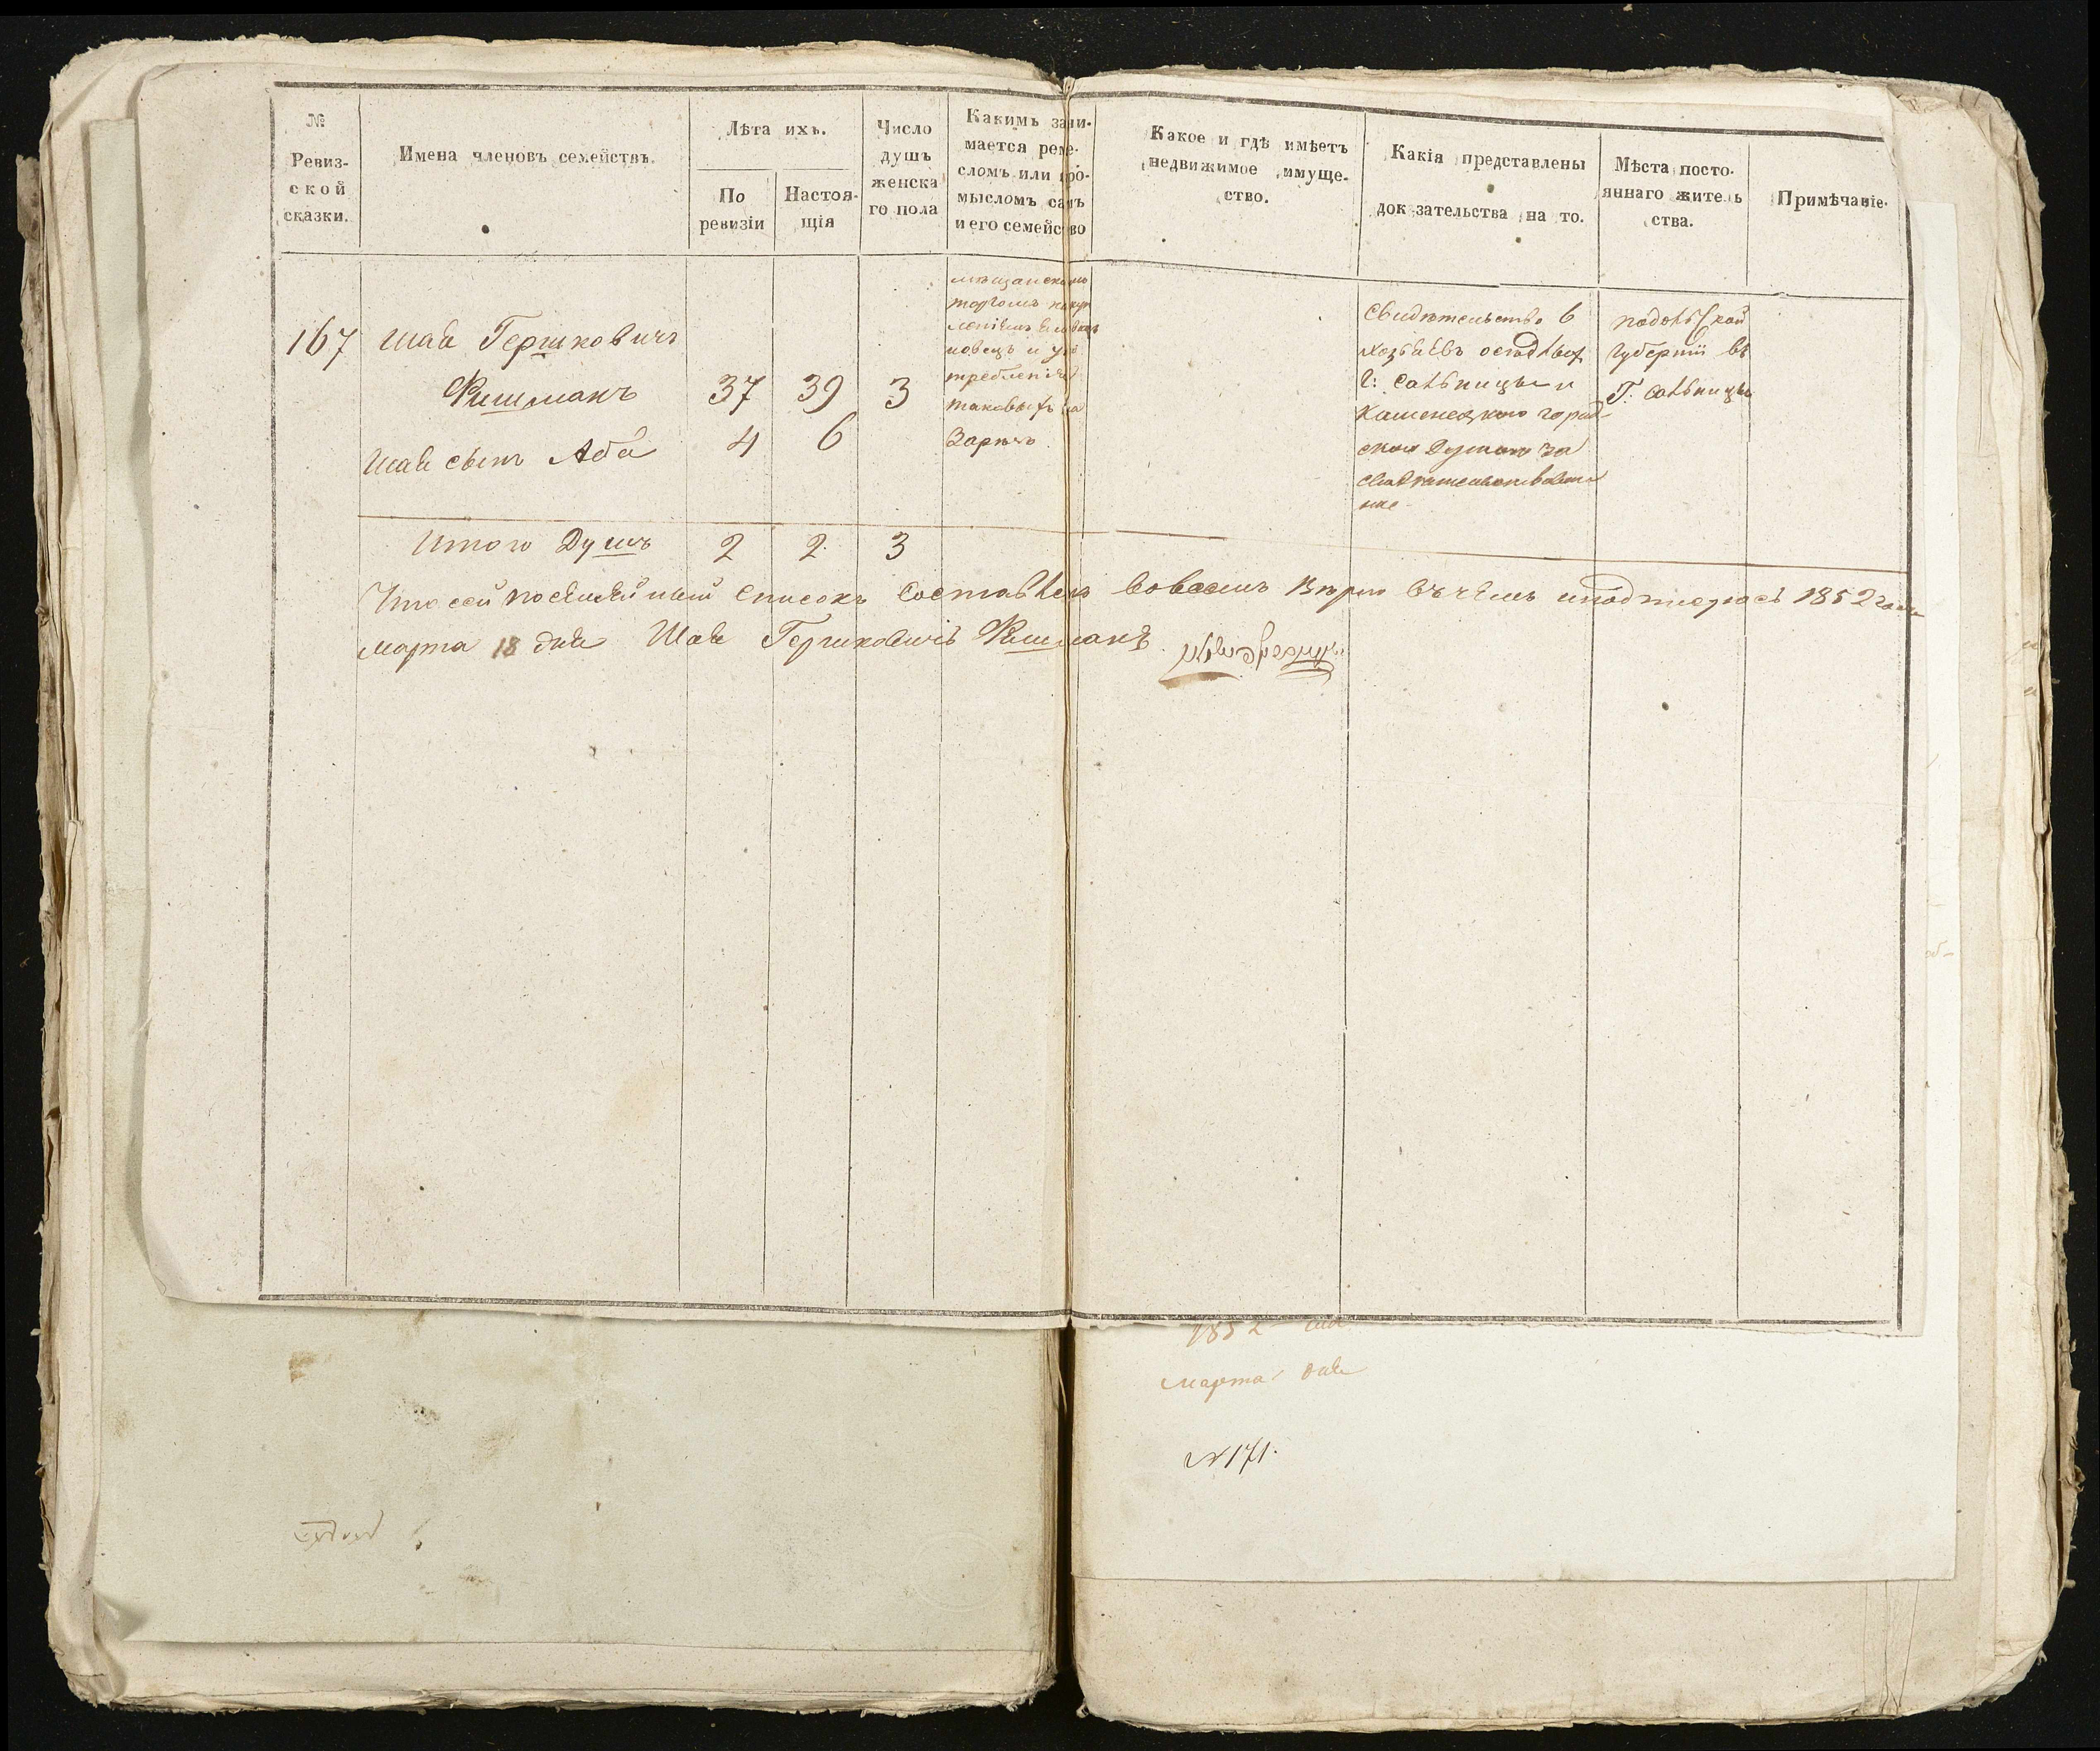 №
Ревиз-
ской
сказки.
Имена членовъ семействъ.
Лѣта ихъ.
По
ревизіи
Настоя-
щія
Число
душъ
женска
го пола
Какимъ зани-
мается реме-
сломъ или про-
мысломъ самъ
и его семейство
Какое и гдѣ имѣетъ
недвижимое имуще-
ство.
Какія представлены
док зательства на то.
Мѣста посто-
яннаго житель
ства.
Примѣчаніе.
167 Шая Гершковичъ
Фишманъ 37 39 3
Шаи сынъ Аба 4 6
мѣщанскимъ
торгомъ
овецъ и
таковыхъ на
Зарѣзъ
Свидѣтельство 6
хозяевъ
г: Сальницы и
Каменецкою город
ской Думою за
свидѣтельствован
ное
Подольской
Губерніи въ
Г: Сальницы
Итого Душъ 2 2 3
Что сей посемейный списокъ составленъ вовсемъ вѣрно въ чемъ и подписуюсь 1852 года
марта 18 дня Шая Гершковичъ Фишманъ
1852
марта дня
№ 171.